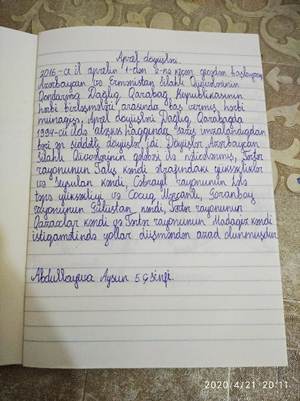 Aprel döyüşləri.
2016-cı il aprelin 1-dən 2-nə keçən gecədən başlayaraq
Azərbaycan və Ermənistan Silahlı Qüvvələrinin
Qondarma Dağlıq Qarabağ Respublikasının
hərbi birləşmələri arasında baş vermiş hərbi
münaqişə, Aprel döyüşləri Dağlıq Qarabağda
1994-cü ildə atəşkəs haqqında saziş imzalandıqdan
bəri ən şiddətli döyüşlər idi. Döyüşlər Azərbaycan
Silahlı Qüvvələrinin qələbəsi ilə nəticələnmiş, Tərtər
rayonunun Talış kəndi ətrafındakı yüksəkliklər
və Seysulan kəndi, Cəbrayıl rayonunun Lələ
təpə yüksəkliyi və Cocuq Mərcanlı, Goranboy
rayonunun Gülüstan kəndi, Tərtər rayonunun
Qazaxlar kəndi və Tərtər rayonunun Madagiz kəndi
istiqamətində yollar düşməndən azad olunmuşdur.
Abdullayeva Aysun 5 sinif
2020/4/21 20:11